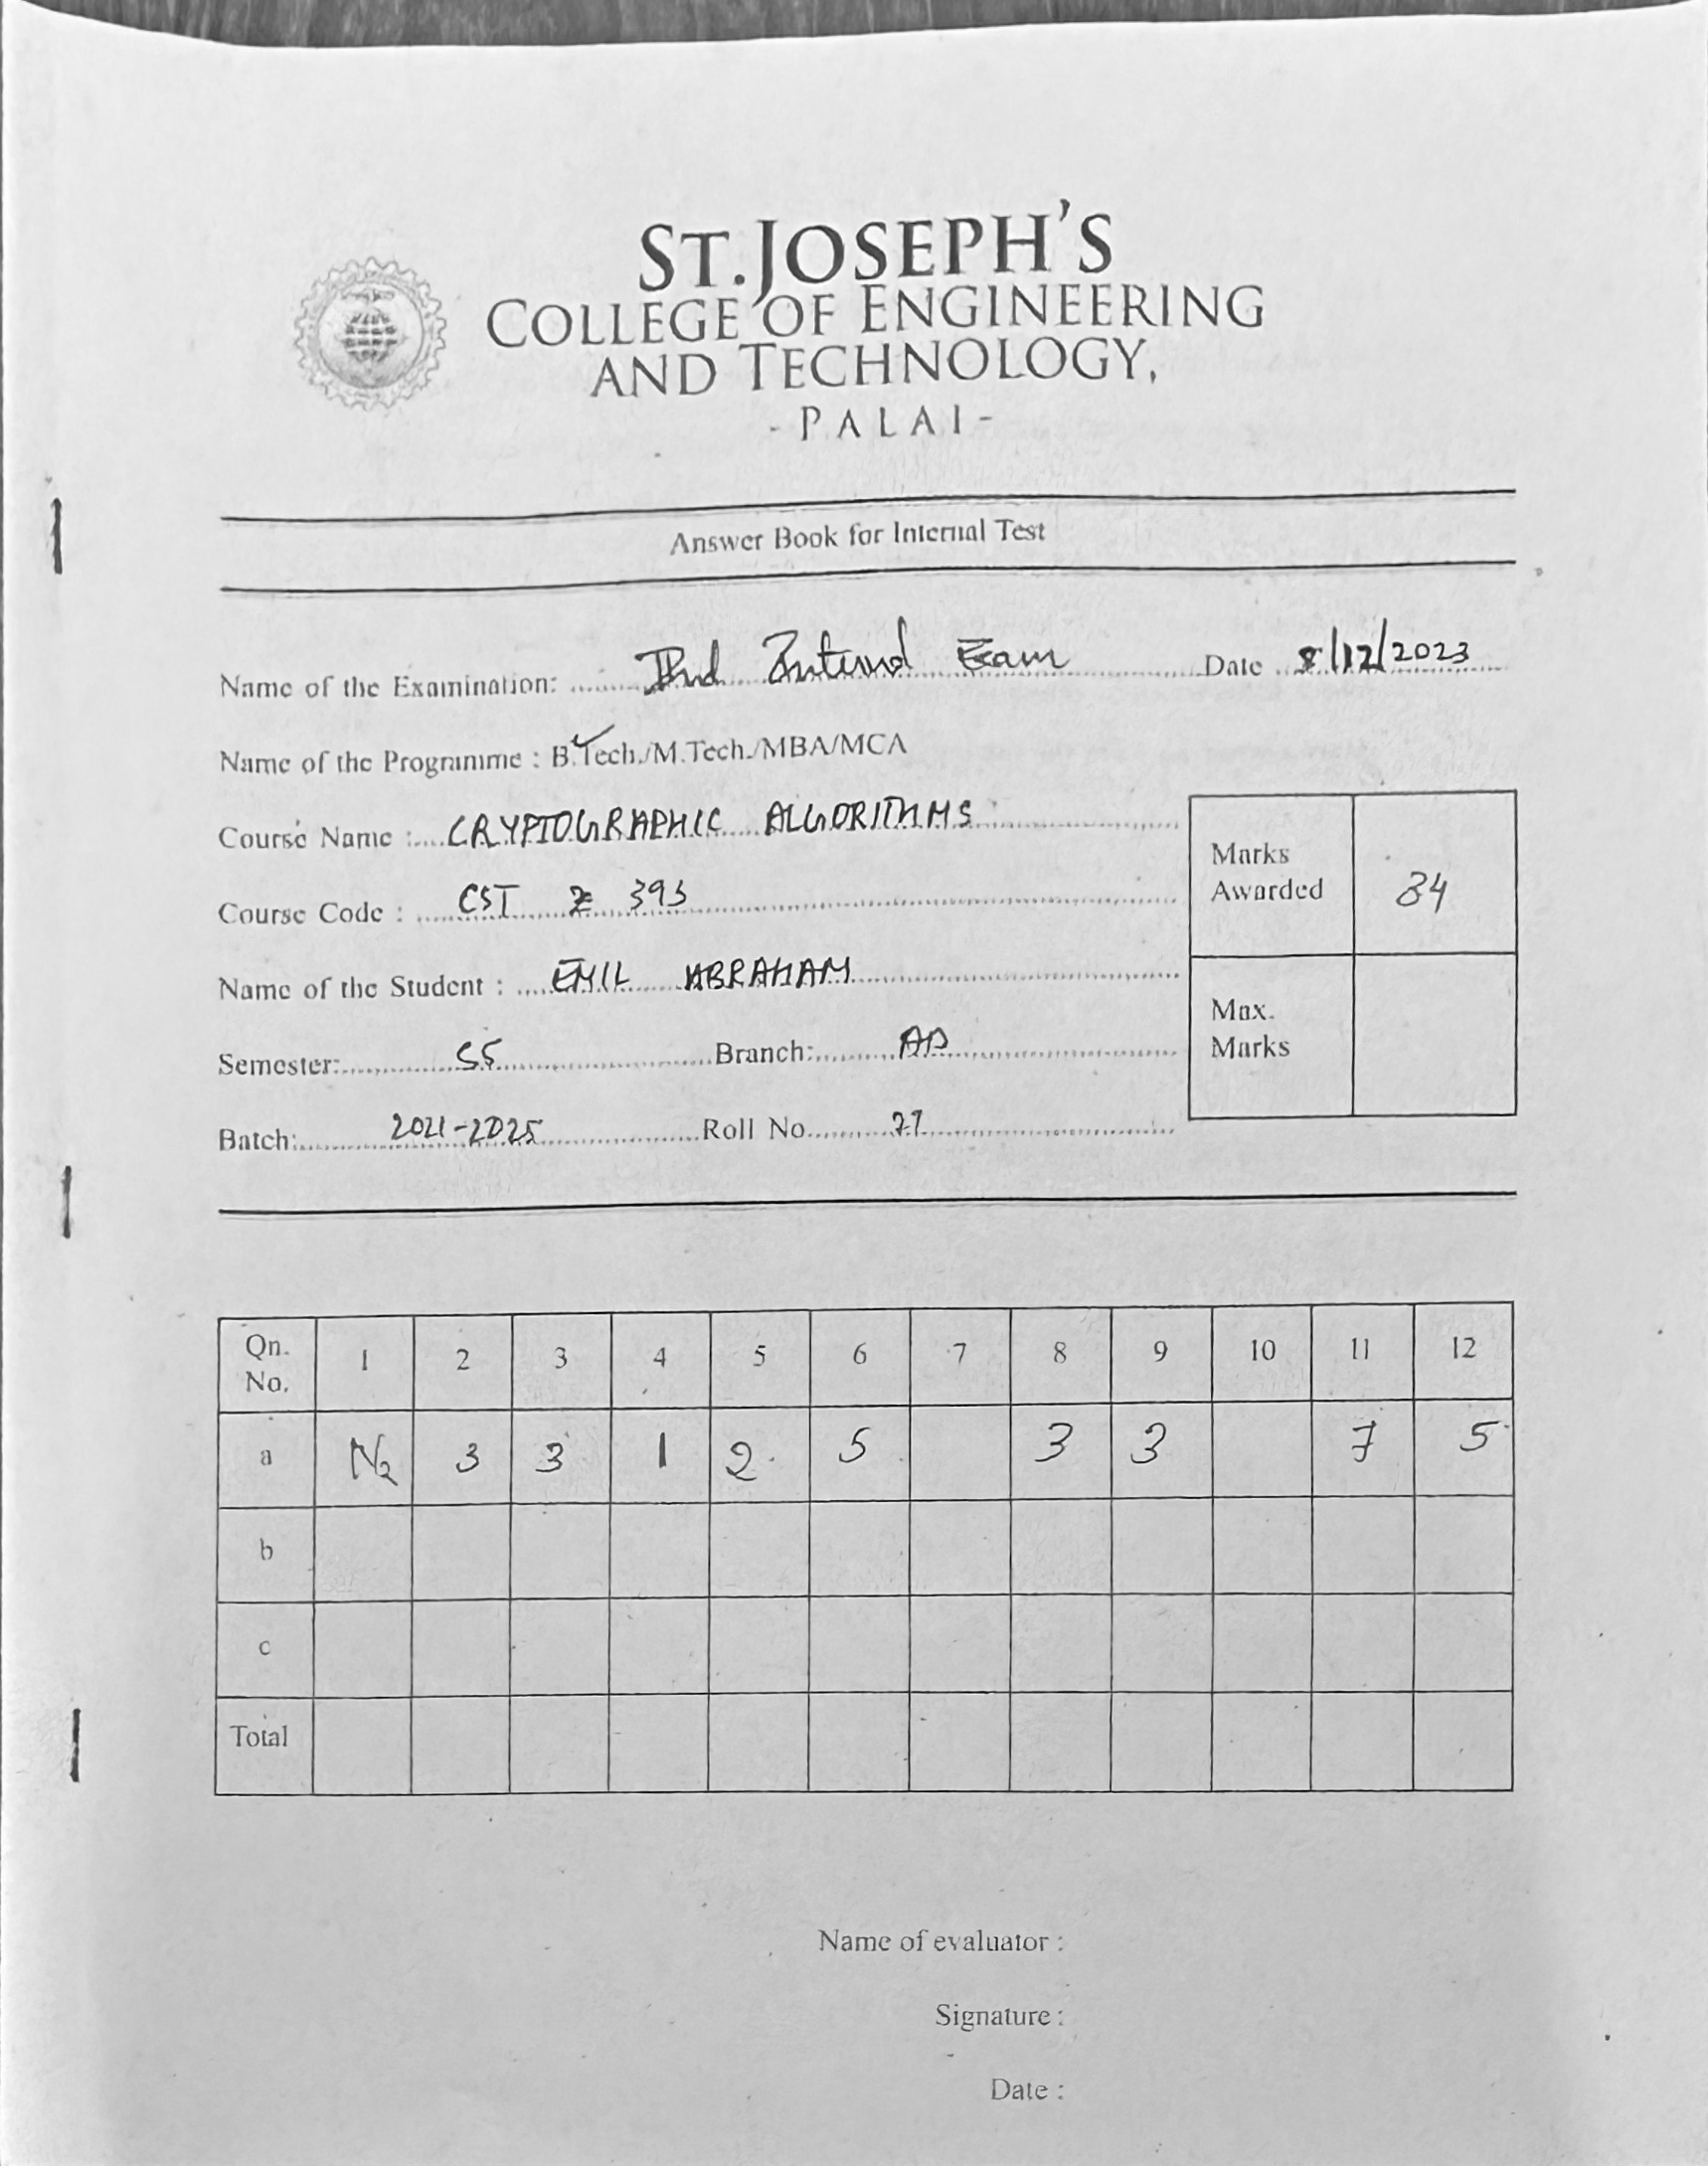 ST.JOSEPH'S
COLLEGE OF ENGINEERING
AND TECHNOLOGY,
- PALAI -
Answer Book for Internal Test
Name of the Examination: IInd Internal Exam Date 8/12/2023
Name of the Programme : B.Tech./M.Tech./MBA/MCA
Course Name : CRYPTOGRAPHIC ALGORITHMS
Marks Awarded 34
Course Code : CST 393
Name of the Student : EMIL ABRAHAM
Max. Marks
Semester: S5 Branch: AD
Batch: 2021-2025 Roll No. 27
Qn. No. 1 2 3 4 5 6 7 8 9 10 11 12
a 3 3 1 2 5 3 3 7 5
b
c
Total
Name of evaluator :
Signature :
Date :